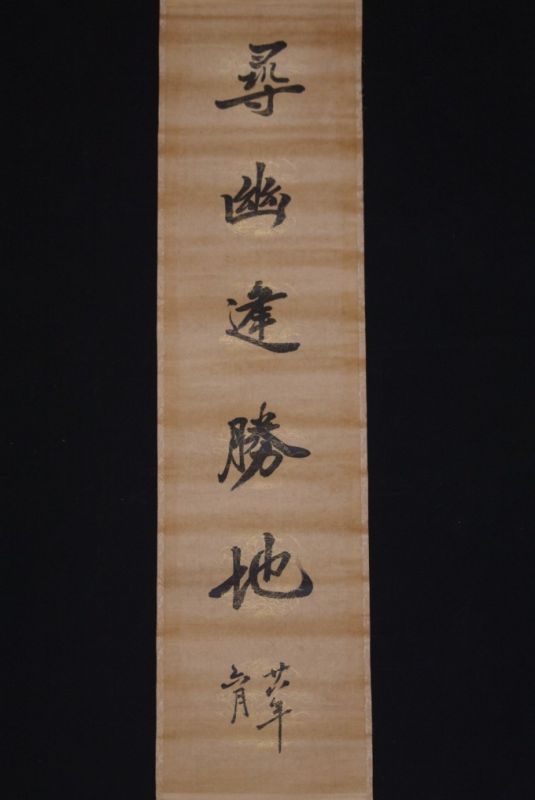 尋幽逢勝地
廿八年
六月